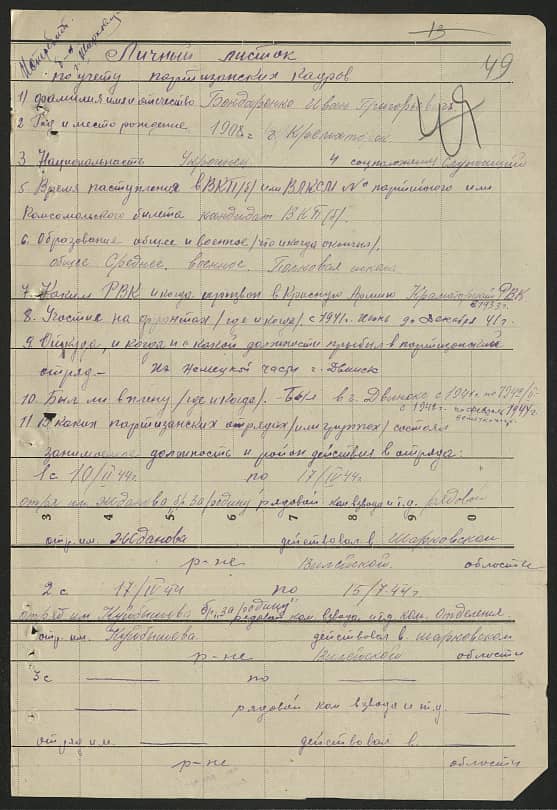 13
49
Личный листок
по учету партизанских кадров
1) фамилия имя отчество Бондаренко Иван Григорьевич
2 Год и место рождение 1908 г г. Краматорск
3. Национальность Украинец 4 соцположения Служащий
5. Время паступления в ВКП/б/ или ВЛКСМ № партийного или
Комсомольского билета кандидат ВКП/б/.
6. Образование общее и военное /что и когда окончил/.
общее Среднее. военное. Полковая школа
7. Каким РВК и когда призван в Красную Армию Краматорский РВК
8. Участие на фронтах /где и когда/. с 1941 г. июнь до декабря 41 г.
9. Откуда, и когда и с какой должности прибыл в партизанский
отряд – Из немецкой части г. Двинск
10. Был ли в плену /где и когда/. – Был в г. Двинске с 1941 по 1942/
с 1942 г. по февраль 1944 г.
11 В каких партизанских отрядах /или группах/ состоял
занимаемое должность и район действия в отряда:
1 с 10/II 44 г по 17/IV 44 г
отряд им. Жданова бр. За /родину рядовой ком взвода и т.д. рядовой
3 4 5 6 7 8 9 0
отр. им. Жданова действовал в Шарковской
р-не Вилейской области
2 с 17/IV 44 по 15/7. 44 г.
отряд им Куйбышова бр. "за /родину" рядовой ком взвода, и т.д. ком. Отделения.
отр. им. Куйбышова. действовал в. Шарковском
р-не Вилейской области
3 с по
рядовой ком взвода и т.д.
отряд им. действовал в.
р-не области